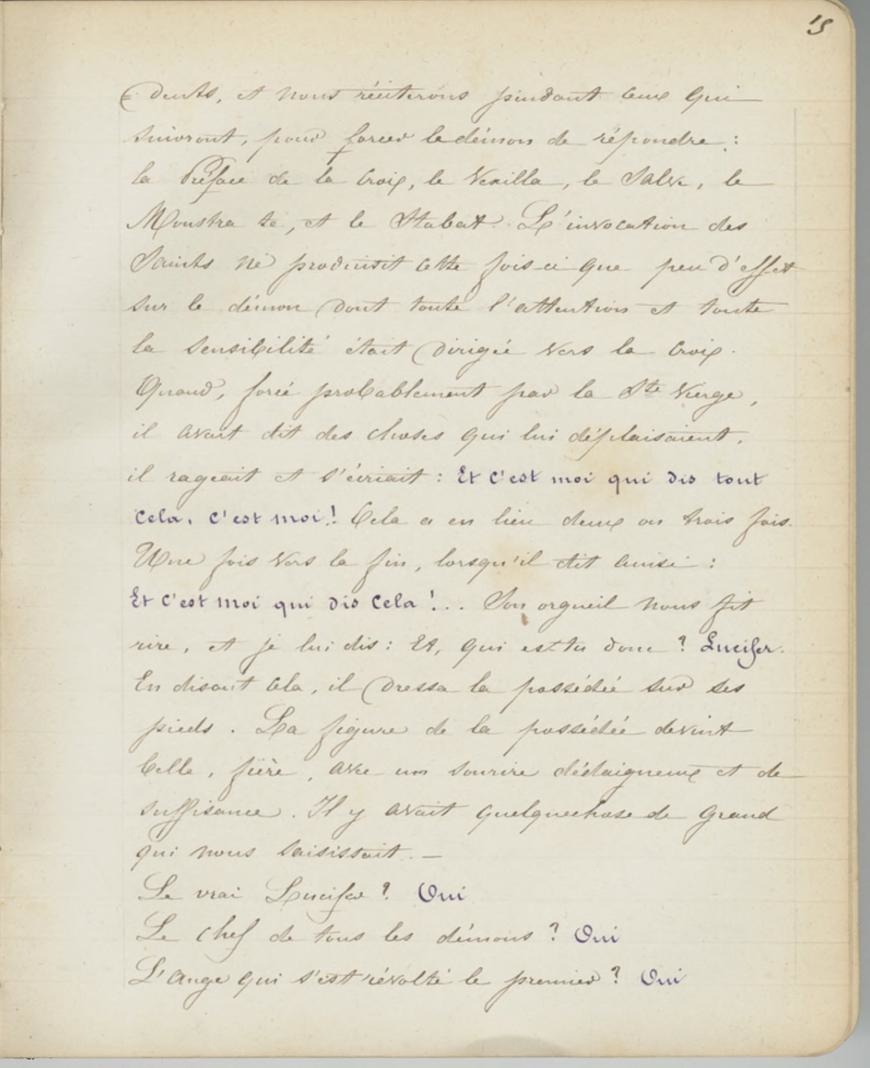 15
dents, et nous réciterons pendant ceux qui
suivront, pour forcer le démon de répondre :
la Préface de la Croix, le Vexilla, le Salve, le
Monstra te, et le Stabat. L'invocation des
Saints ne produisit cette fois-ci que peu d'effet
sur le démon dont toute l'attention et toute
la sensibilité était dirigée vers la Croix.
Quand, forcé probablement par la Ste Vierge,
il avait dit des choses qui lui déplaisaient,
il rageait et s'écriait : Et c'est moi qui dis tout
cela, c'est moi ! Cela a eu lieu deux ou trois fois.
Une fois vers la fin, lorsqu'il dit ainsi :
Et c'est moi qui dis cela !.. Son orgueil nous fit
rire, et je lui dis : Et, qui es-tu donc ? Lucifer.
En disant cela, il dressa la possédée sur ses
pieds. La figure de la possédée devint
belle, fière, avec un sourire dédaigneux et de
suffisance. Il y avait quelquechose de grand
qui nous saisissait. —
Le vrai Lucifer ? Oui
Le chef de tous les démons ? Oui
L'ange qui s'est révolté le premier ? Oui